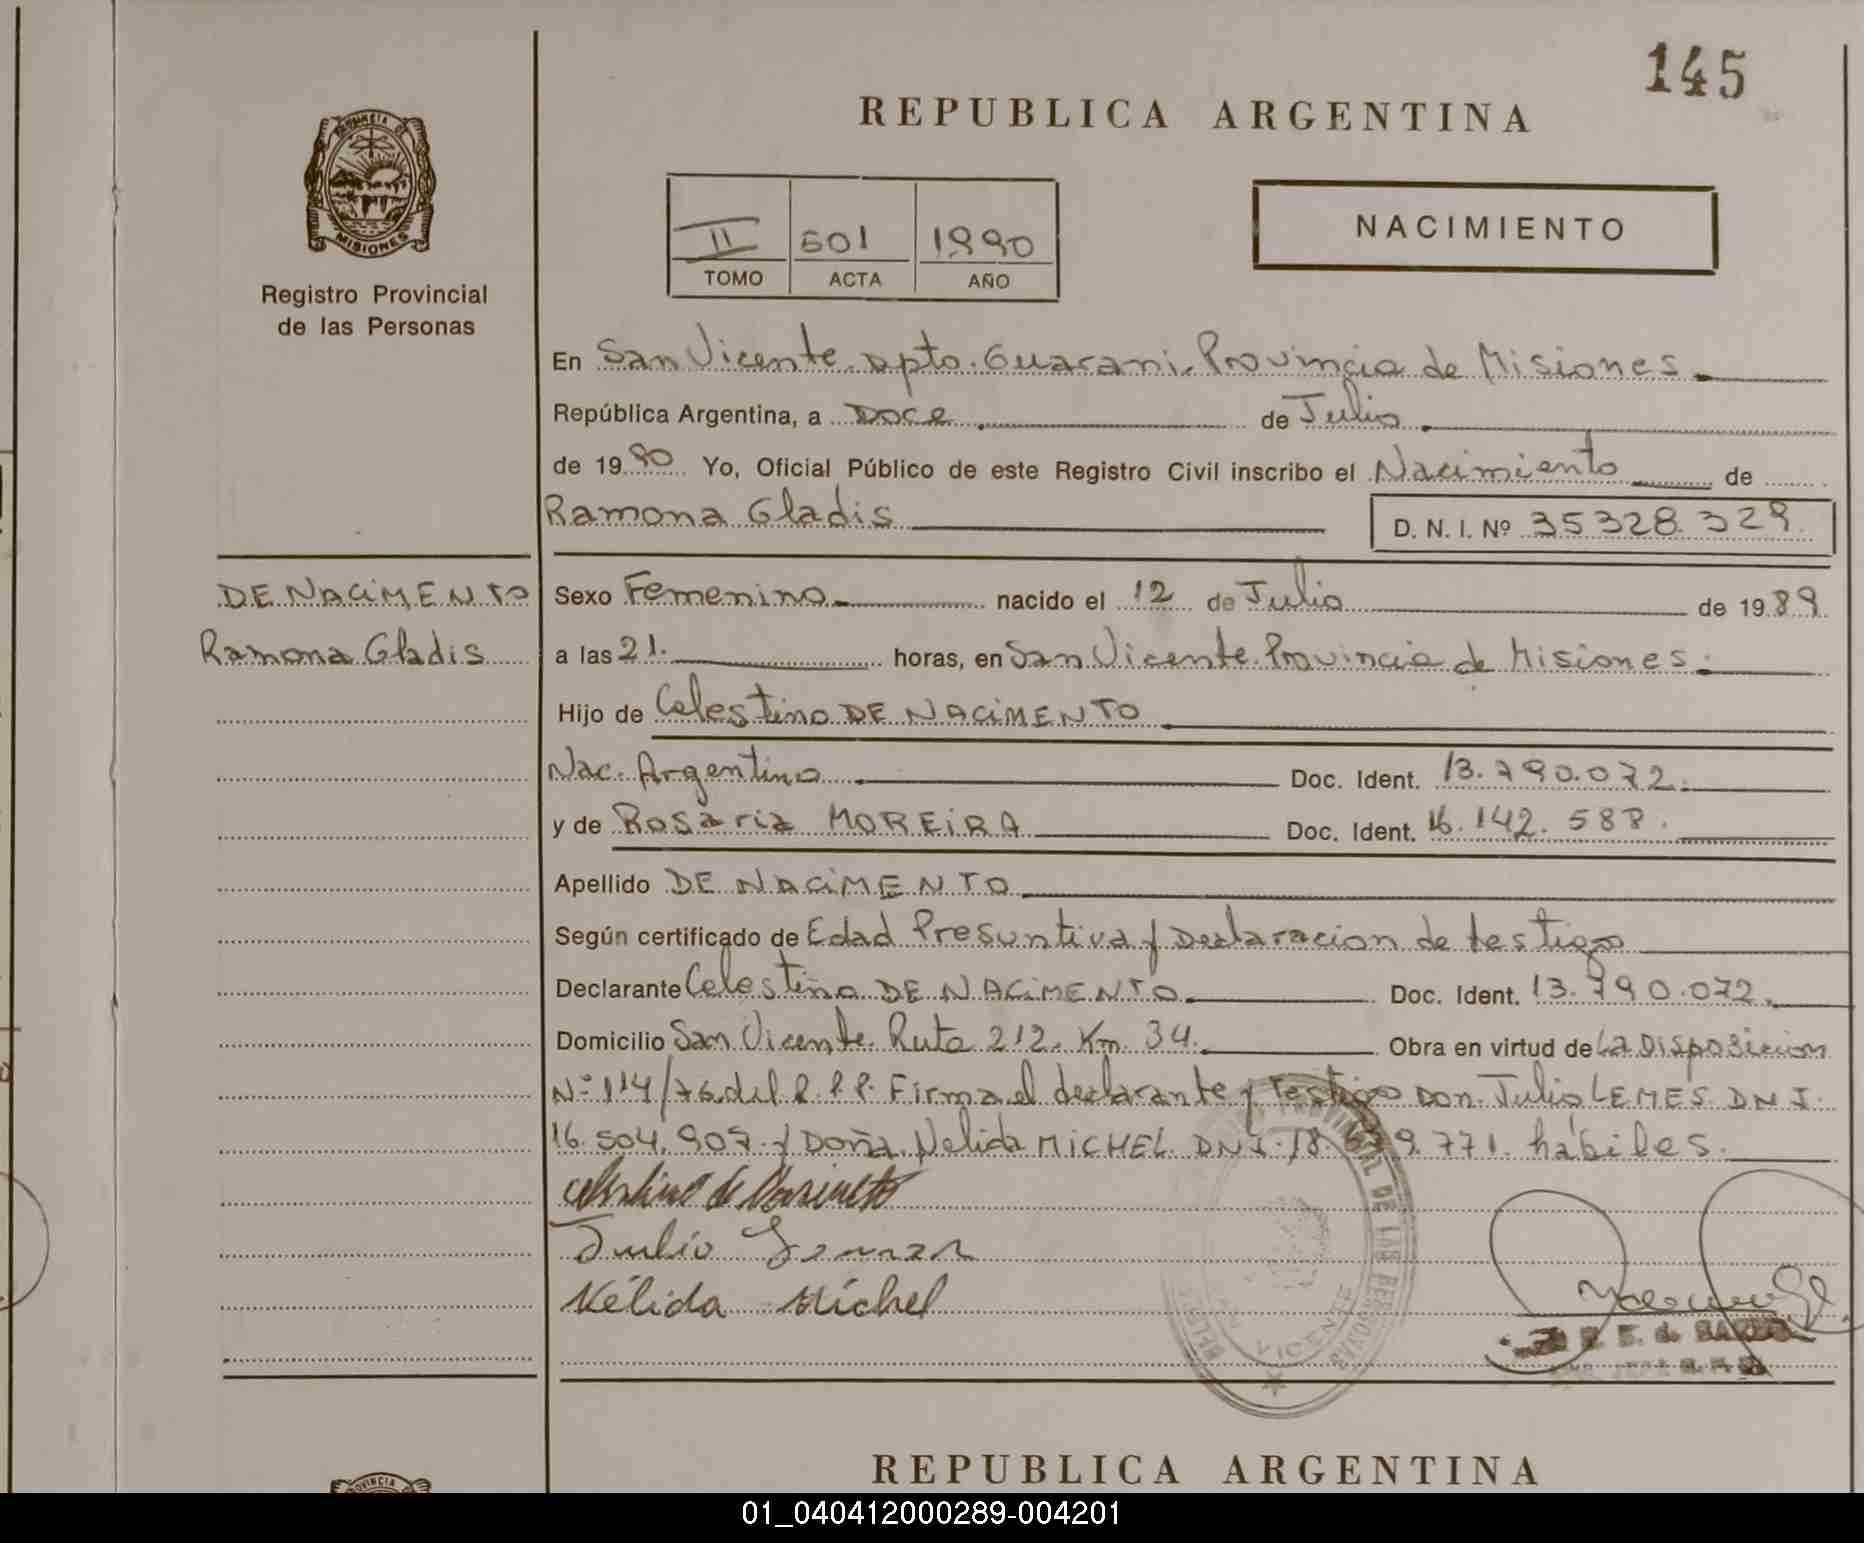 145
REPUBLICA ARGENTINA
PROVINCIA DE
MISIONES
Registro Provincial
de las Personas
II 501 1990
TOMO ACTA AÑO
NACIMIENTO
En San Vicente Dpto. Guarani, Provincia de Misiones
República Argentina, a Doce de Julio
de 1990 Yo, Oficial Público de este Registro Civil inscribo el Nacimiento de
Ramona Gladis D. N. I. Nº 35328.329
DE NACIMENTO
Ramona Gladis
Sexo Femenino nacido el 12 de Julio de 1989
a las 21. horas, en San Vicente Provincia de Misiones.
Hijo de Celestino DE NACIMENTO
Nac. Argentino Doc. Ident. 13.790.072.
y de Rosaria MOREIRA Doc. Ident. 16.142.588.
Apellido DE NACIMENTO
Según certificado de Edad Presuntiva y Declaracion de testigo
Declarante Celestino DE NACIMENTO Doc. Ident. 13.790.072.
Domicilio San Vicente. Ruta 212. Km. 34. Obra en virtud de La Disposicion
Nº 114/76 del R.P.P. Firma el declarante y Testigo Don Julio LEMES DNI.
16.504.907 y Doña Nelida MICHEL DNI. 18. 771. hábiles.
Celestino de
Julio
Nélida Michel
DE LAS PERSONAS
VICENTE
REPUBLICA ARGENTINA
PROVINCIA
01_040412000289-004201